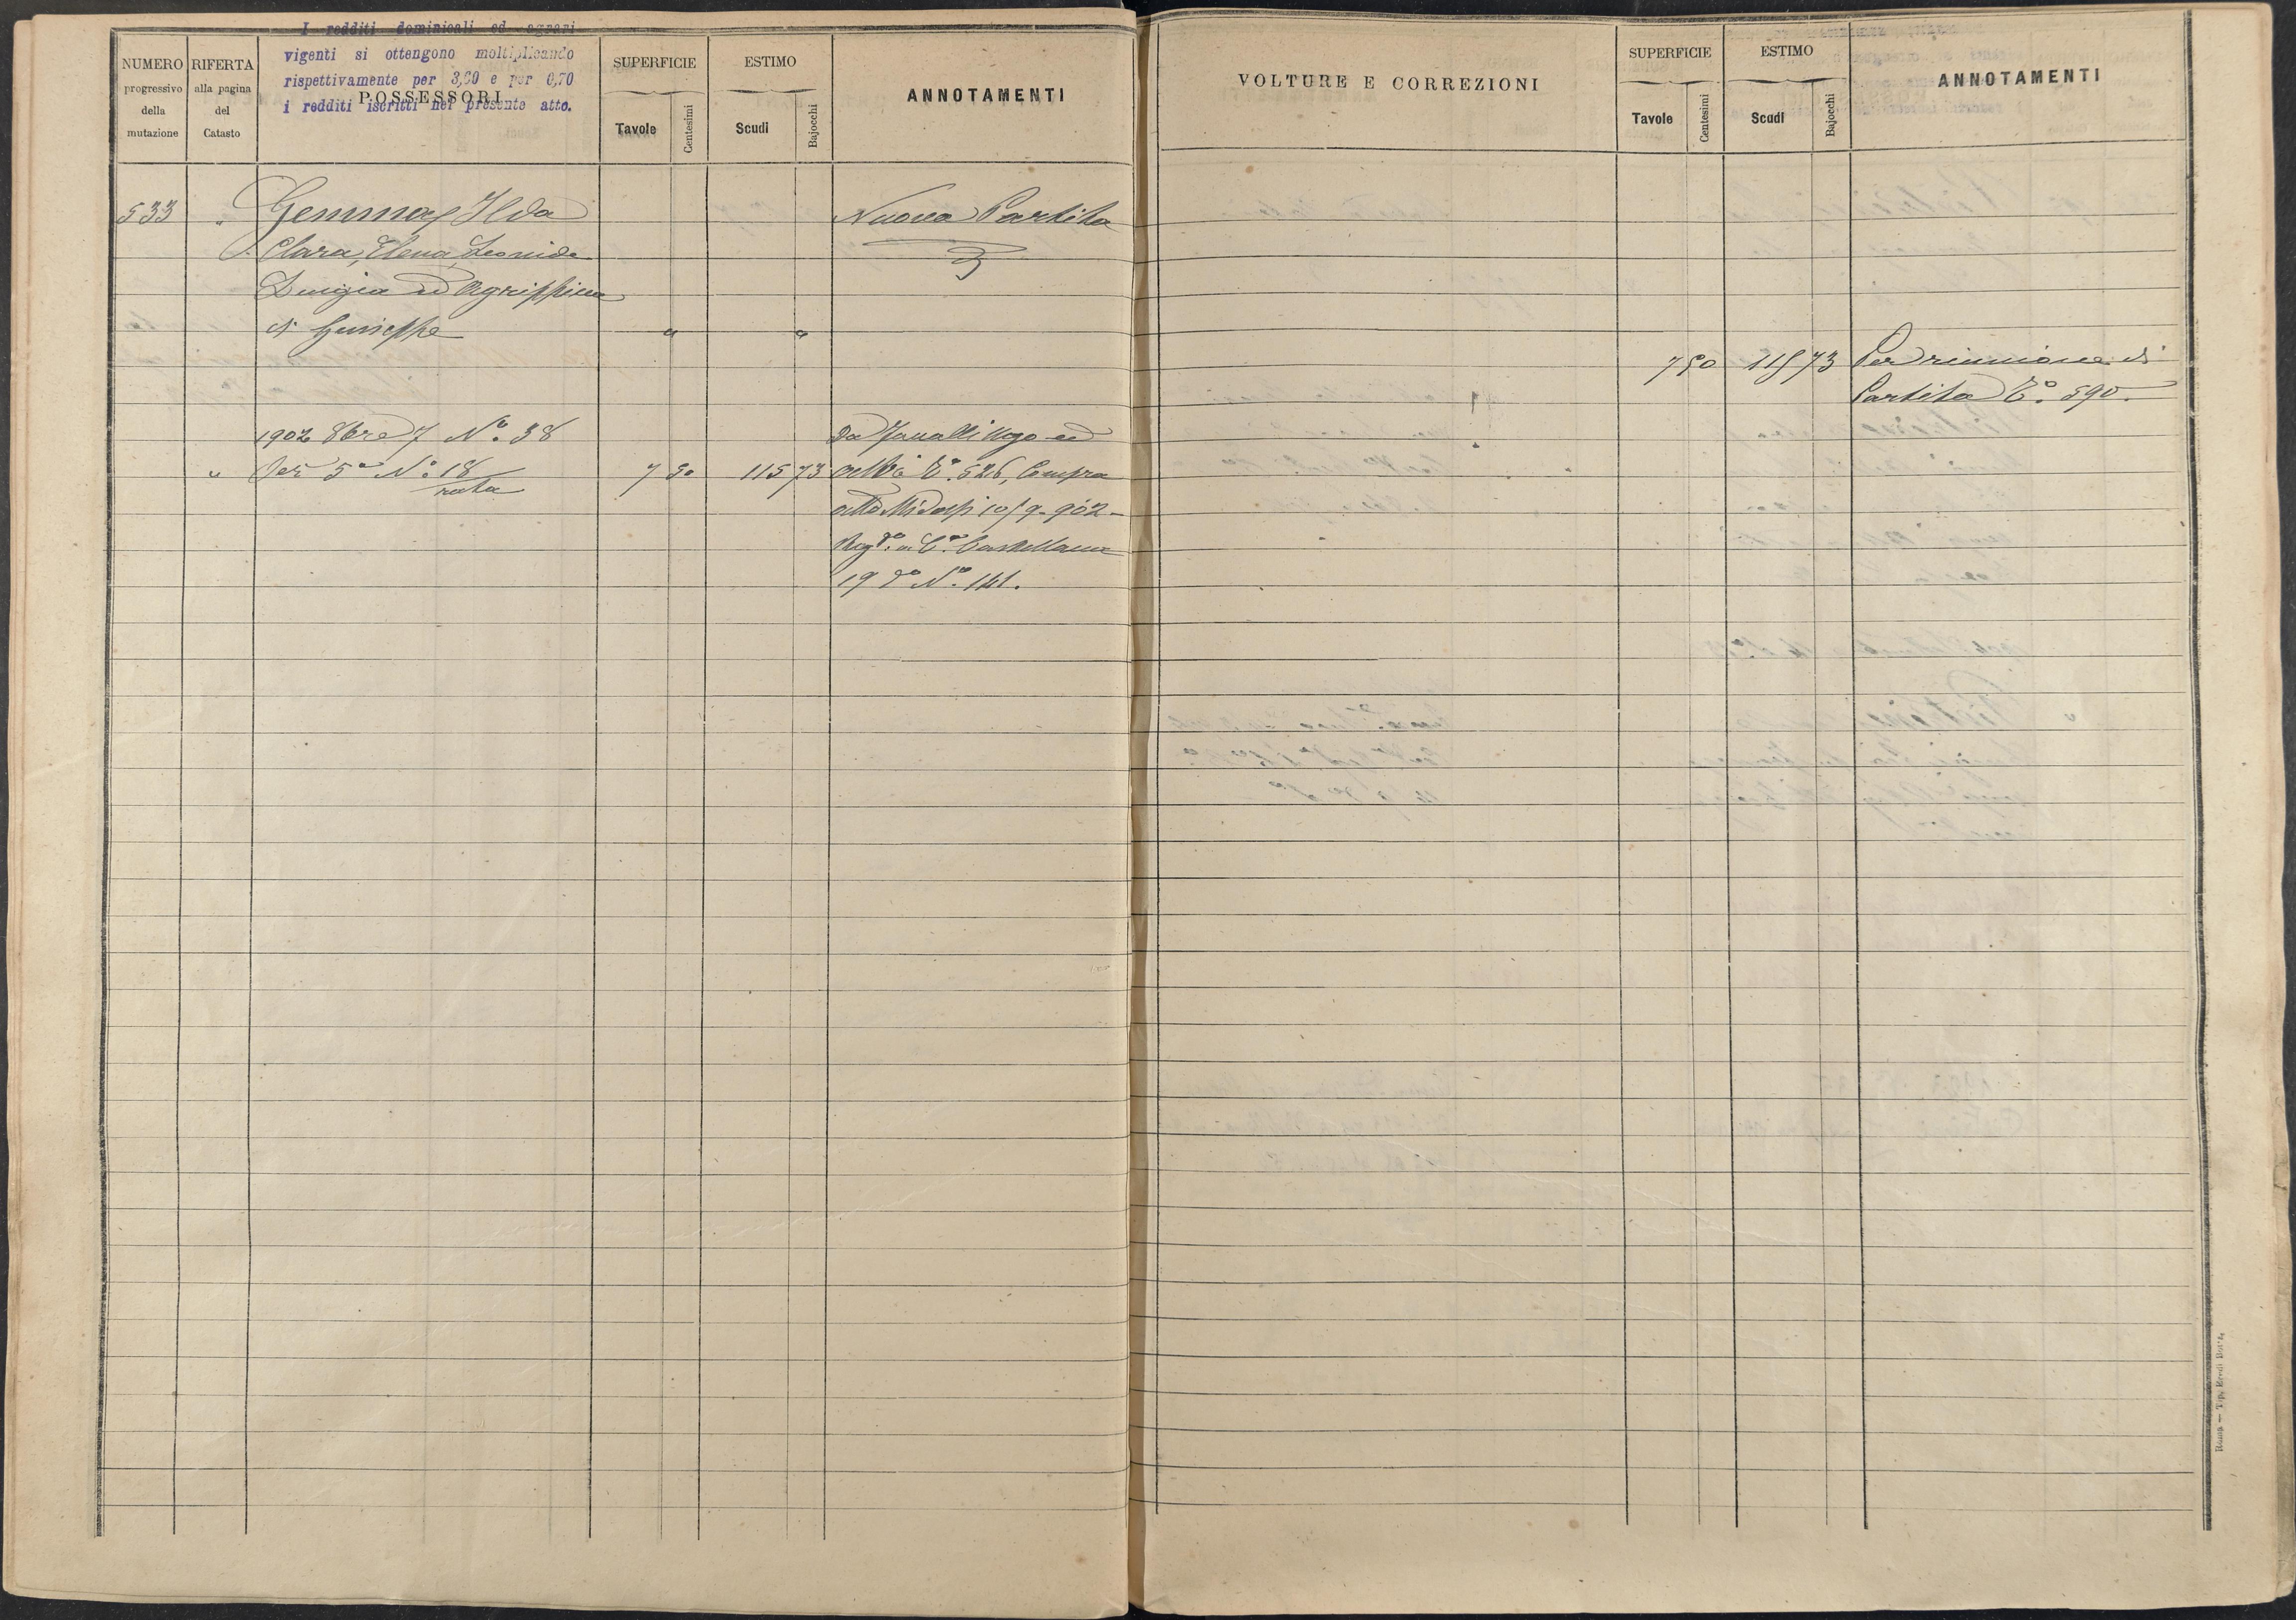 I redditi dominicali ed agrari
vigenti si ottengono moltiplicando
rispettivamente per 3,90 e per 0,70
i redditi iscritti nel presente atto.
NUMERO
progressivo
della
mutazione
RIFERTA
alla pagina
del
Catasto
POSSESSORI
SUPERFICIE
Tavole
Centesimi
ESTIMO
Scudi
Bajocchi
ANNOTAMENTI
533 " Gemmay Ilda Nuova Partita
Clara, Elena, Leonide
Luigia ed Agrippina
di Giuseppe " "
1902 8bre 7 Nº 38 Da Ugo ed
" Per 5º Nº 18 7 50 115 73 altri Eº 526, Compra
rata
atto Midossi 10/9-902-
Regº in Cª Castellana
19 dº Nº 141.
VOLTURE E CORREZIONI
SUPERFICIE
Tavole
Centesimi
ESTIMO
Scudi
Bajocchi
ANNOTAMENTI
7 50 115 73 Per riunione di
Partita Eº 590.
Roma — Tip. Eredi Botta